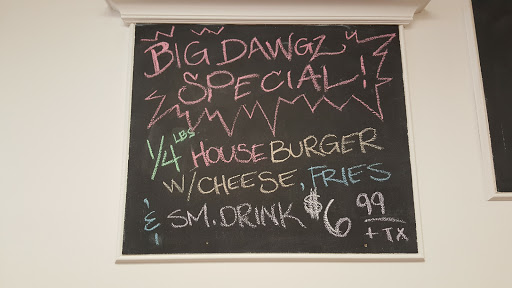 BIG DAWGZ
SPECIAL!
1/4 LBS HOUSE BURGER
W/CHEESE, FRIES
& SM. DRINK $6 99
+ TX